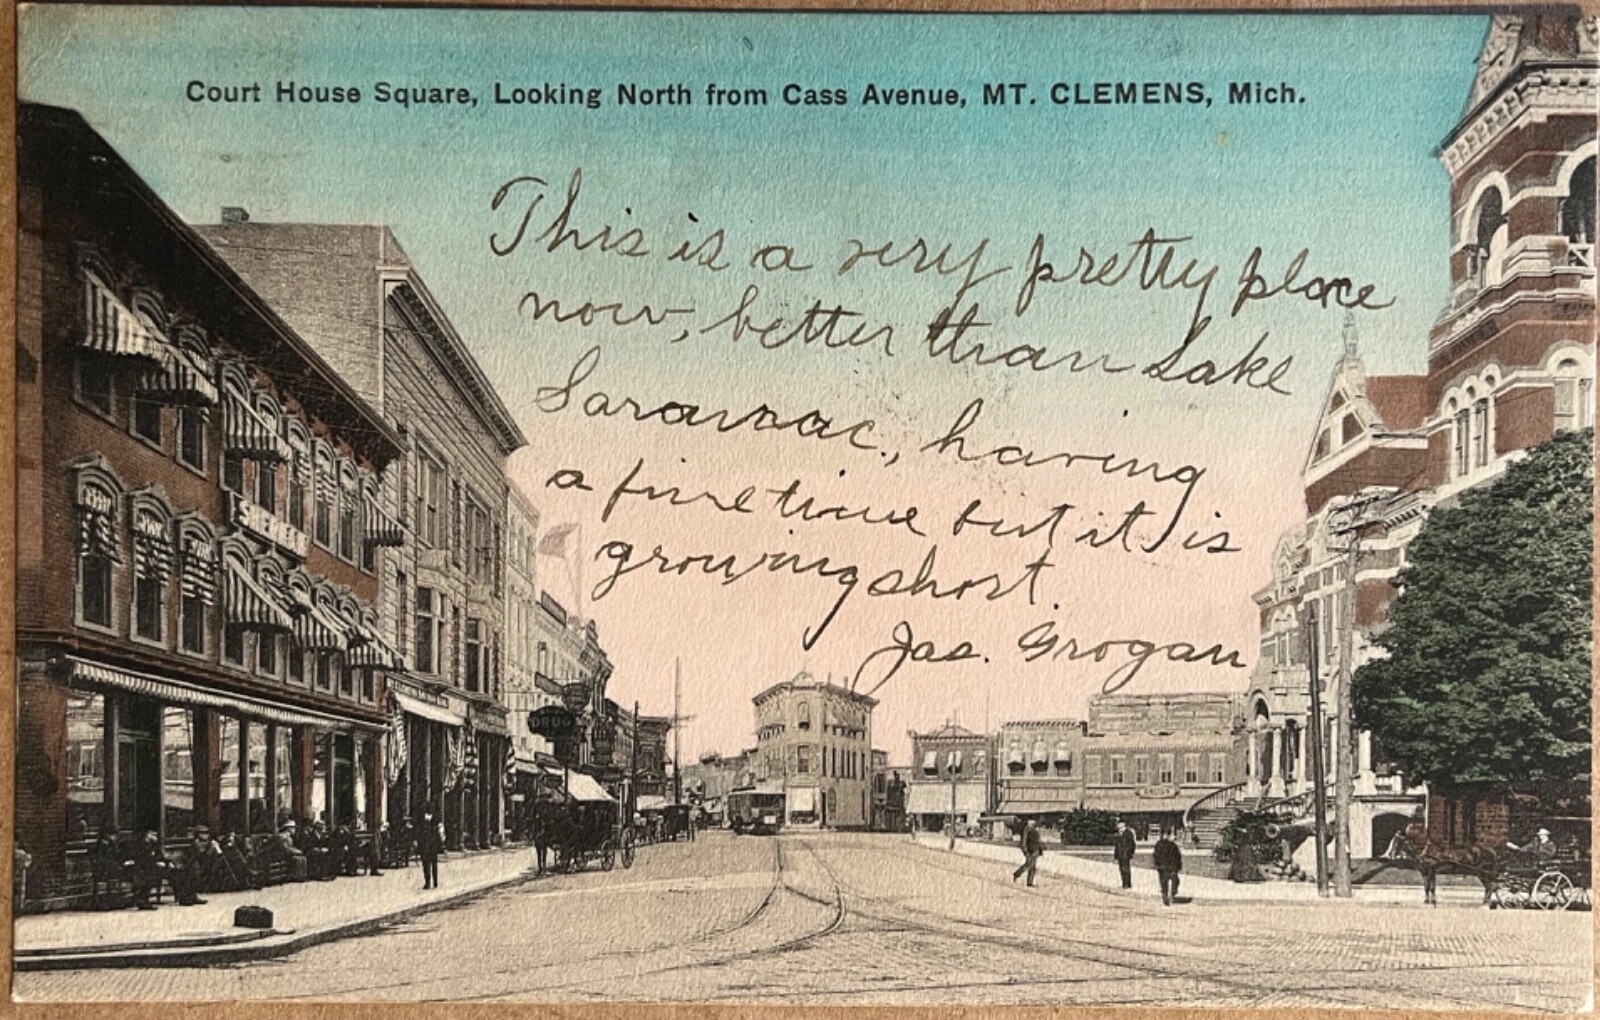 Court House Square, Looking North from Cass Avenue, MT. CLEMENS, Mich.
This is a very pretty place
now, better than Lake
Saranac, having
a fine time but it is
growing short.
Jas. Grogan
DRUGS